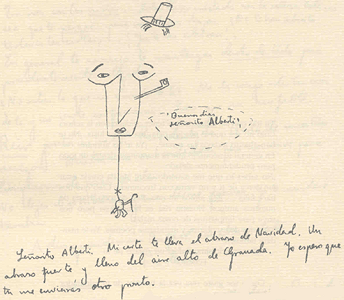 "Buenos días
señorito Alberti"
Señorito Alberti. Mi carta te lleva el abrazo de Navidad. Un
abrazo fuerte y lleno del aire alto de Granada. Yo espero que
tu me enviarás otro pronto.